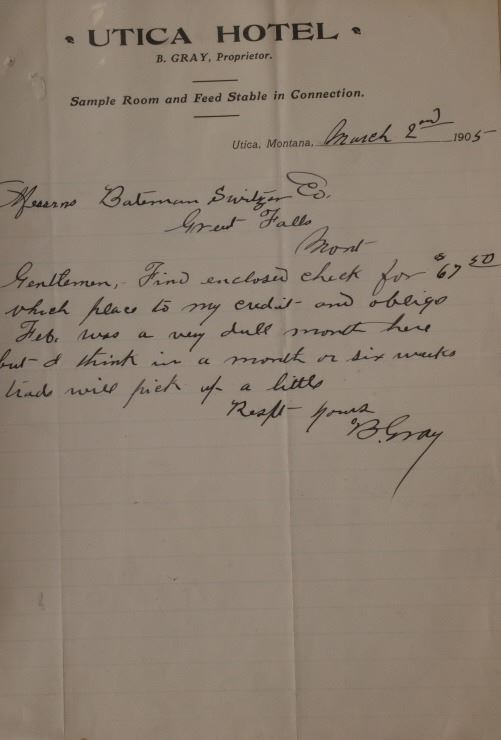 UTICA HOTEL
B. GRAY, Proprietor.
Sample Room and Feed Stable in Connection.
Utica, Montana, March 2nd 1905
Messrs Bateman Switzer Co.
Great Falls
Mont
Gentlemen,- Find enclosed check for $67 50
which place to my credit and oblige
Feb. was a very dull month here
but I think in a month or six weeks
trade will pick up a little
Respt yours
B. Gray